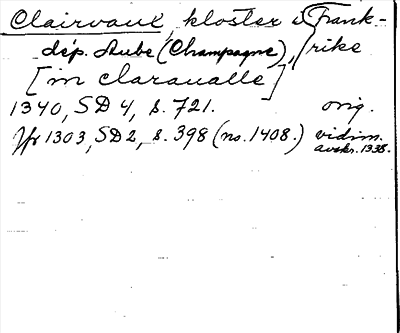 Clairvaux, kloster i Frank-
dép. Aube (Champagne), rike
[in claraualle]
1340, SD 4, s. 721. orig.
Jfr 1303, SD 2, s. 398 (no. 1408.) vidim.
avskr. 1338.